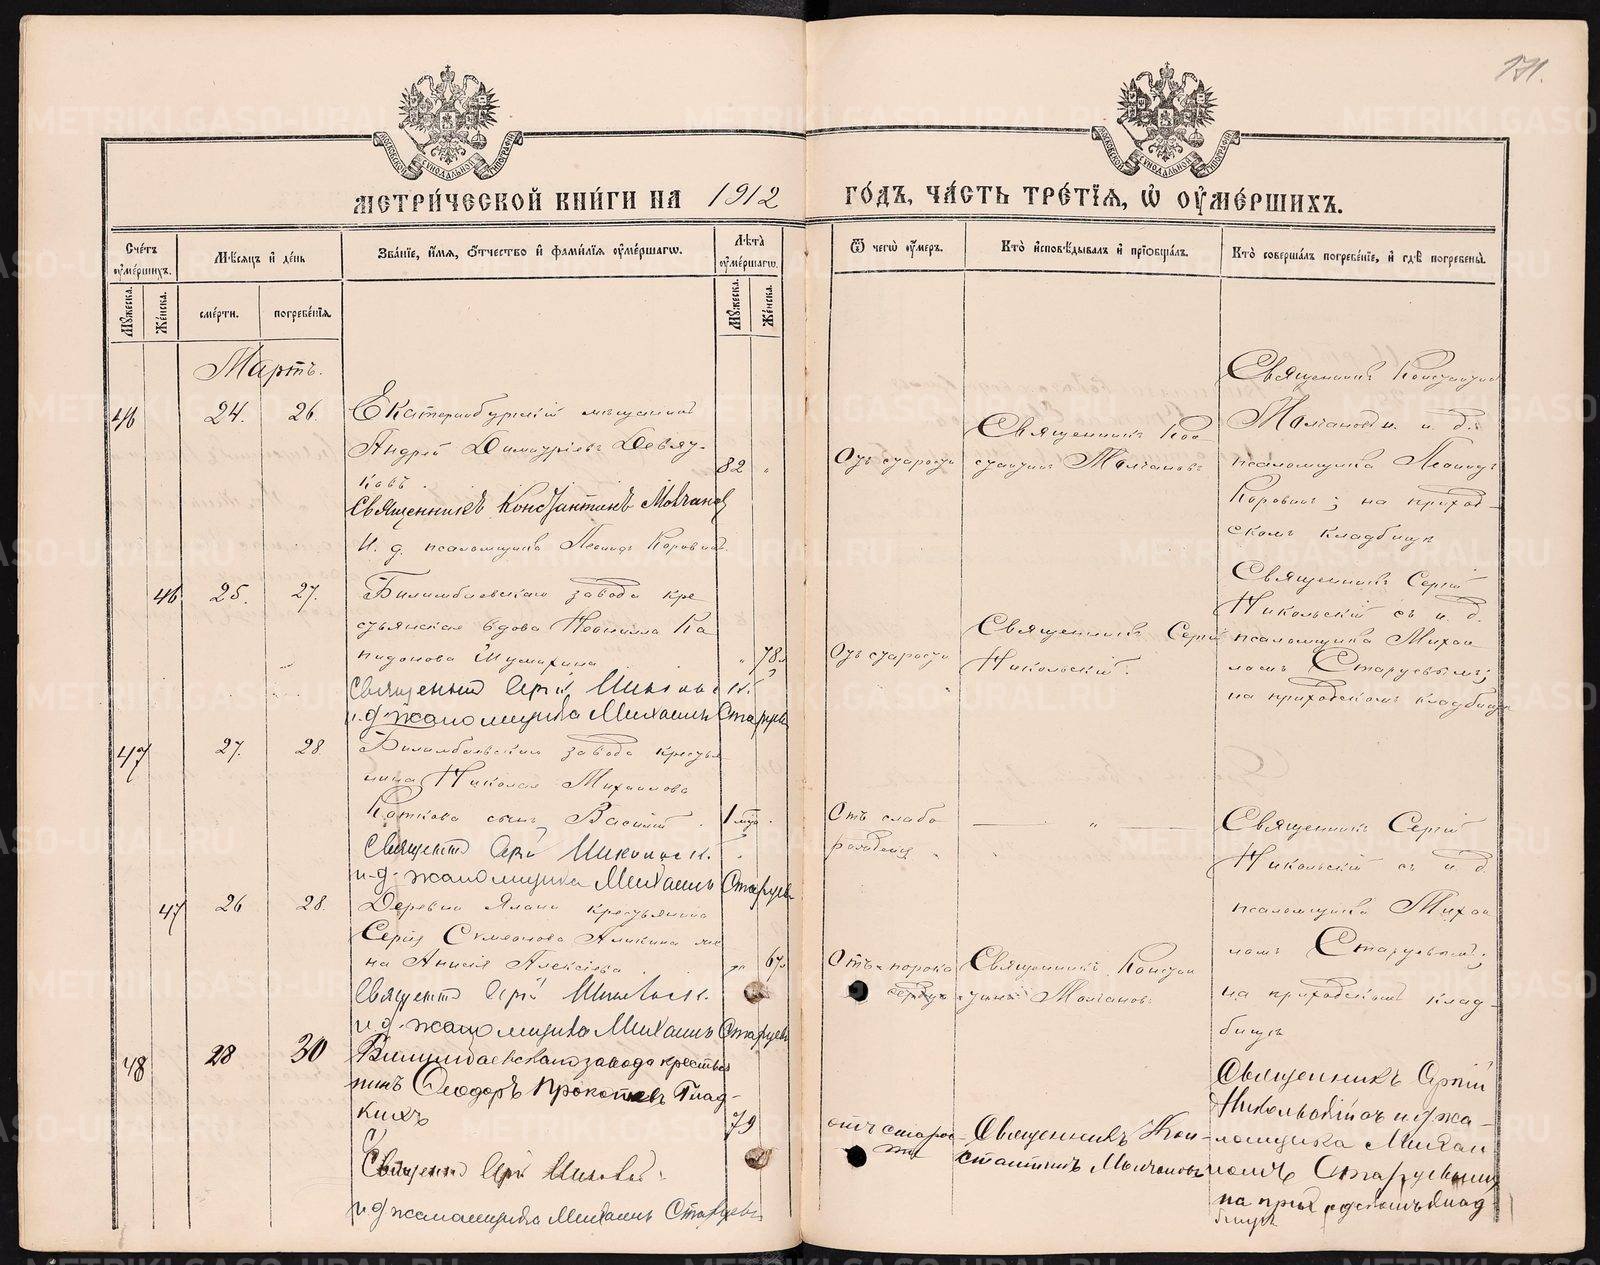 171.
МОСКОВСКОЙ СѴНОДАЛЬНОЙ ТИПОГРАФІИ
МОСКОВСКОЙ СѴНОДАЛЬНОЙ ТИПОГРАФІИ
МЕТРИ́ЧЕСКОЙ КНИ́ГИ НА 1912 ГО́ДЪ, ЧА́СТЬ ТРЕ́ТІѦ, Ѡ҆ ОУ҆МЕ́РШИХЪ.
Сче́тъ оумершихъ.
Мѣсяцъ и де́нь
Зва́ніе, и́мя, о́тчество и фами́лія оуме́ршагѡ.
Лѣта̀ оуме́ршагѡ.
Ѿ чегѡ̀ оу́меръ.
Кто̀ исповѣ́дывалъ и пріобща́лъ.
Кто̀ соверша́лъ погребе́ніе, и гдѣ̀ погребены̀.
Му́жеска.
Же́нска.
сме́рти.
погребе́нія.
Му́жеска.
Же́нска.
Мартъ.
46 24. 26.
Екатеринбургскій мѣщанинъ
Андрей Димитріевъ Девят-
ковъ.
82 "
Священникъ Константинъ Молчановъ
И. д. псаломщика Леонидъ Коровинъ.
Отъ старости
Священникъ Кон-
стантинъ Молчановъ
Священникъ Константинъ
Молчановъ и. д.
псаломщика Леонидъ
Коровинъ; на приход-
скомъ кладбищѣ
46 25. 27.
Билимбаевскаго завода кре
стьянская вдова Неонилла Ка
питонова Шумихина
" 78
Священникъ Сергій Никольскій
и.д. псаломщика Михаилъ Старцевъ
Отъ старости
Священникъ Сергій
Никольскій.
Священникъ Сергій
Никольскій съ и. д.
псаломщика Михаи
ломъ Старцевымъ;
на приходскомъ кладбищѣ
47 27. 28
Билимбаевскаго завода крестья
нина Николая Михаилова
Коткова сынъ Василій
1 мѣс.
Священникъ Сергій Никольскій
и.д. псаломщика Михаилъ Старцевъ
Отъ слабо
рожденія
"
Священникъ Сергій
Никольскій съ и. д.
псаломщика Михаи
ломъ Старцевымъ;
на приходскомъ клад-
бищѣ
47 26 28.
Деревни крестьянина
Сергія Симеонова Аликина же
на Анисія Алексіева
" 67
Священникъ Сергій Никольскій
и.д. псаломщика Михаилъ Старцевъ
Отъ порока
сердца
Священникъ Констан
тинъ Молчановъ
48 28 30
Билимбаевскаго завода крестья
нинъ Ѳеодоръ Прокопьевъ Глад-
кихъ
79
Священникъ Сергій Никольскій
и д псаломщика Михаилъ Старцевъ
отъ старос-
ти
Священникъ Кон-
стантинъ Молчановъ
Священникъ Сергій
Никольскій съ и д пса-
ломщика Михаи
ломъ Старцевымъ
на приходскомъ клад
бищѣ
METRIKI.GASO-URAL.RU